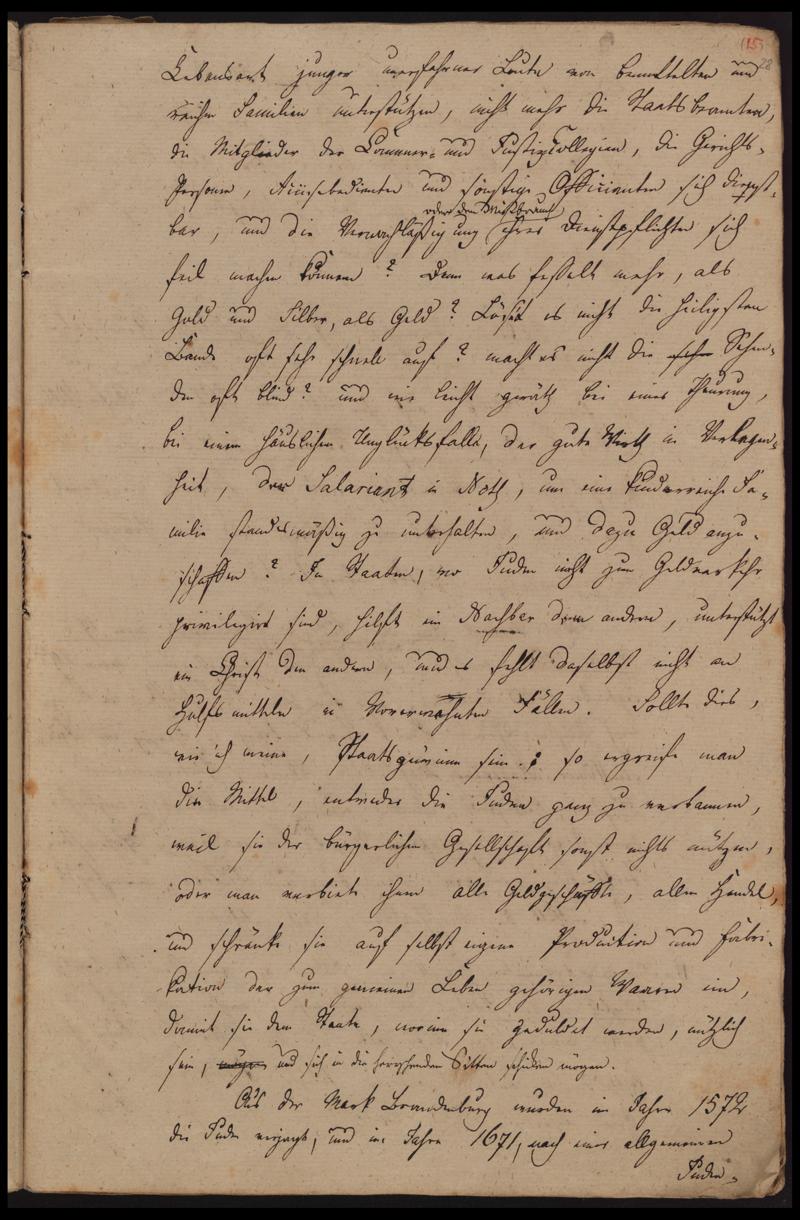 (15)
28
Lebensart junger unerfahrner Leute von bemittelten und
reichen Familien unterstützen, nicht mehr die Staatsbeamten,
die Mitglieder der Kammer- und Justizkollegien, die Gerichts-
Personen, Amtsbedienten und sonstige Officianten sich dienst-
oder den Mißbrauch
bar, und die Vernachläßigung ihrer Dienstpflichten sich
feil machen können? Denn was fesselt mehr, als
Gold und Silber, als Geld? Löset es nicht die heiligsten
Bande oft sehr schnell auf? macht es nicht die Sehen-
den oft blind? und wie leicht geräth bei einer Theurung,
bei einem häuslichen Unglücksfalle, der gute Wirth in Verlegen-
heit, der Salariant in Noth, um eine kinderreiche Fa-
milie standesmäßig zu unterhalten, und dazu Geld anzu-
schaffen? In Staaten, wo Juden nicht zum Geldverkehr
privilegirt sind, hilft ein Nachbar dem andern, unterstützt
ein Christ den andern, und es fehlt daselbst nicht an
Hülfsmitteln in vorerwähnten Fällen. Sollte dies,
wie ich meine, Staatsgewinn sein; so ergreife man
die Mittel, entweder die Juden ganz zu verbannen,
weil sie der bürgerlichen Gesellschaft sonst nichts nützen,
oder man verbiete ihnen alle Geldgeschäfte, allen Handel,
und schränke sie auf selbst eigene Production und Fabri-
kation der zum gemeinen Leben gehörigen Waaren ein,
damit sie dem Staate, worinn sie geduldet werden, nützlich
sein, und sich in die herrschenden Sitten schicken mögen.
Aus der Mark Brandenburg wurden im Jahre 1572
die Juden verjagt, und im Jahre 1671, nach einer allgemeinen
Juden-